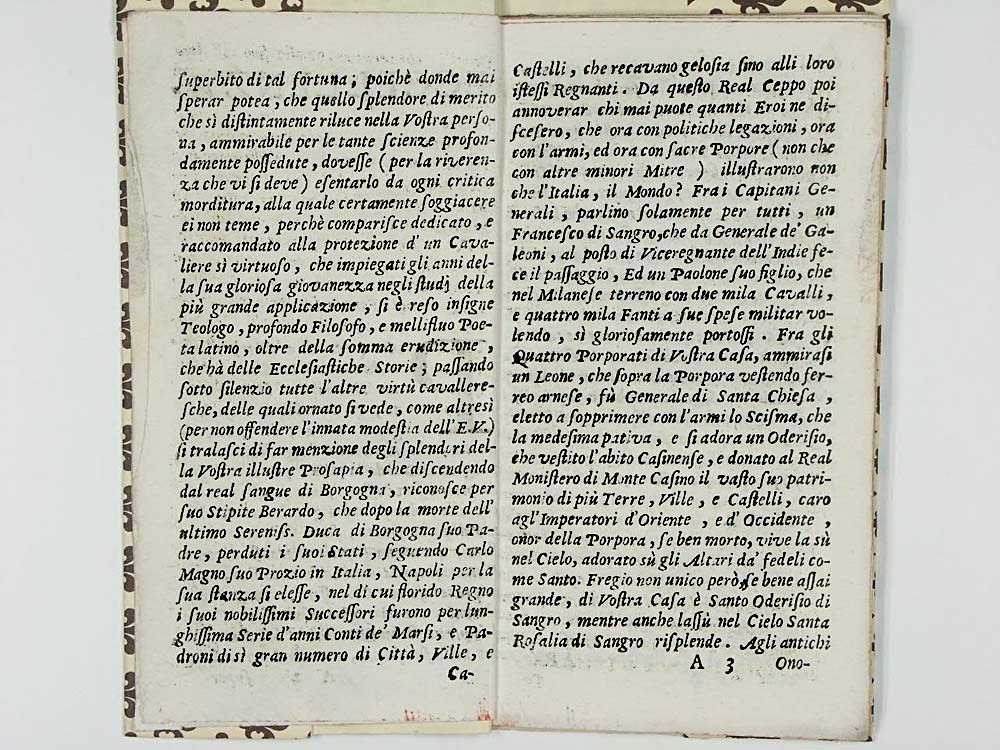 superbito di tal fortuna; poichè donde mai
sperar potea, che quello splendore di merito
che sì distintamente riluce nella Vostra perso-
na, ammirabile per le tante scienze profon-
damente possedute, dovesse (per la riveren-
za che vi si deve) esentarlo da ogni critica
morditura, alla quale certamente soggiacere
ei non teme, perchè comparisce dedicato, e
raccomandato alla protezione d'un Cava-
liere sì virtuoso, che impiegati gli anni del-
la sua gloriosa giovanezza negli studj della
più grande applicazione, si è reso insigne
Teologo, profondo Filosofo, e mellifluo Poe-
ta latino, oltre della somma erudizione,
che hà delle Ecclesiastiche Storie; passando
sotto silenzio tutte l'altre virtù cavallere-
sche, delle quali ornato si vede, come altresì
(per non offendere l'innata modestia dell'E.V.)
si tralasci di far menzione degli splendori del-
la Vostra illustre Prosapia, che discendendo
dal real sangue di Borgogna, riconosce per
suo Stipite Berardo, che dopo la morte dell'
ultimo Sereniss. Duca di Borgogna suo Pa-
dre, perduti i suoi Stati, seguendo Carlo
Magno suo Prozio in Italia, Napoli per la
sua stanza si elesse, nel di cui florido Regno
i suoi nobilissimi Successori furono per lun-
ghissima Serie d'anni Conti de' Marsi, e Pa-
droni di sì gran numero di Città, Ville, e
Ca-
Castelli, che recavano gelosia sino alli loro
istessi Regnanti. Da questo Real Ceppo poi
annoverar chi mai puote quanti Eroi ne di-
scesero, che ora con politiche legazioni, ora
con l'armi, ed ora con sacre Porpore (non che
con altre minori Mitre) illustrarono non
che l'Italia, il Mondo? Fra i Capitani Ge-
nerali, parlino solamente per tutti, un
Francesco di Sangro, che da Generale de' Ga-
leoni, al posto di Viceregnante dell'Indie fe-
ce il passaggio, Ed un Paolone suo figlio, che
nel Milanese terreno con due mila Cavalli,
e quattro mila Fanti a sue spese militar vo-
lendo, sì gloriosamente portossi. Fra gli
Quattro Porporati di Vostra Casa, ammirasi
un Leone, che sopra la Porpora vestendo fer-
reo arnese, fù Generale di Santa Chiesa,
eletto a sopprimere con l'armi lo Scisma, che
la medesima pativa, e si adora un Oderisio,
che vestito l'abito Casinense, e donato al Real
Monistero di Monte Casino il vasto suo patri-
monio di più Terre, Ville, e Castelli, caro
agl'Imperatori d'Oriente, e d'Occidente,
onor della Porpora, se ben morto, vive la sù
nel Cielo, adorato sù gli Altari da' fedeli co-
me Santo. Fregio non unico però, se bene assai
grande, di Vostra Casa è Santo Oderisio di
Sangro, mentre anche lassù nel Cielo Santa
Rosalia di Sangro risplende. Agli antichi
A 3 Ono-